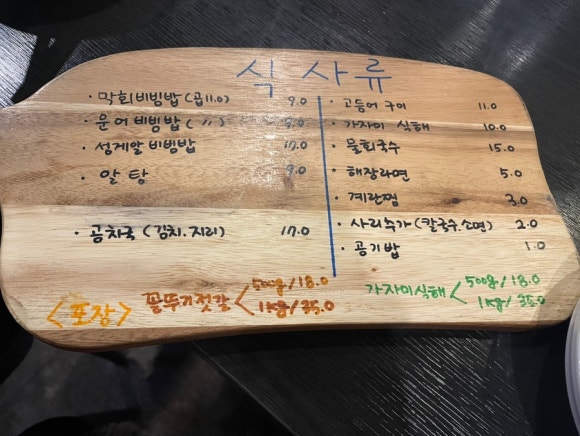 식사류
· 막회비빙밥 (곱11.0) 9.0
· 문어비빙밥 ( 〃 ) 9.0
· 성게알비빙밥 17.0
· 알탕 9.0
· 곰치국 (김치.지리) 17.0
· 고등어 구이 11.0
· 가자미 식해 10.0
· 물회국수 15.0
· 해장라면 5.0
· 계란찜 3.0
· 사리추가 (칼국수.소면) 2.0
· 공기밥 1.0
<포장> 꼴뚜기젓갈 < 500g/18.0
1kg/35.0
가자미식해 < 500g/18.0
1kg/35.0